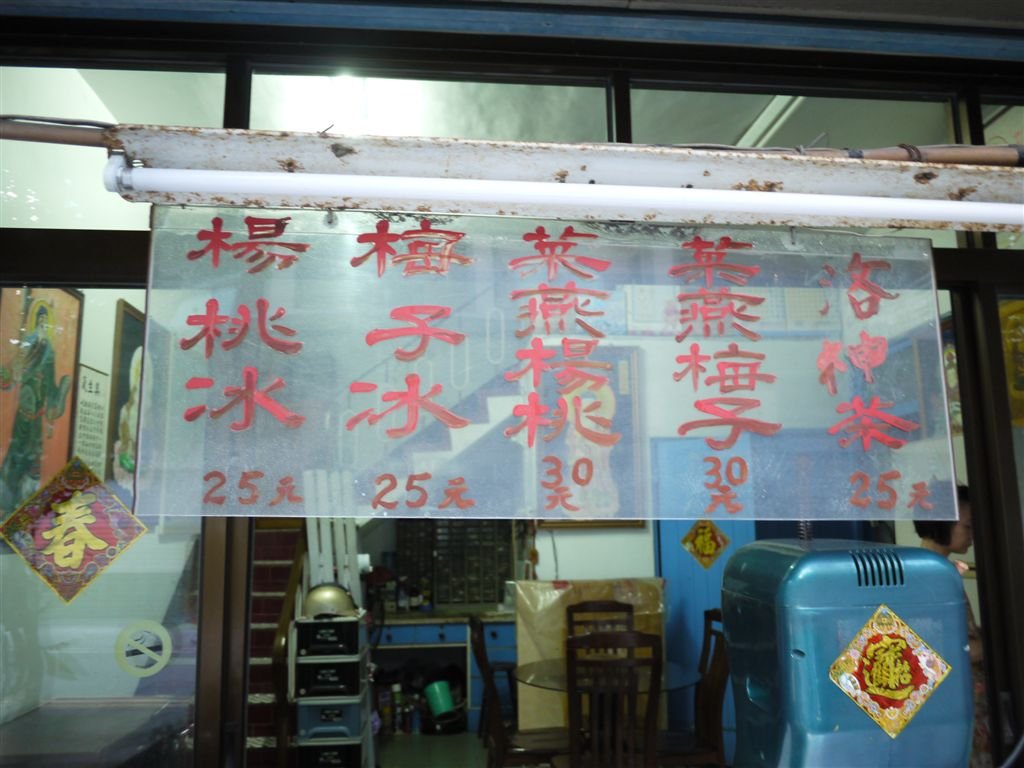 楊桃冰
25元
梅子冰
25元
菜燕楊桃
30元
菜燕梅子
30元
洛神茶
25元
春
福
招財進寶